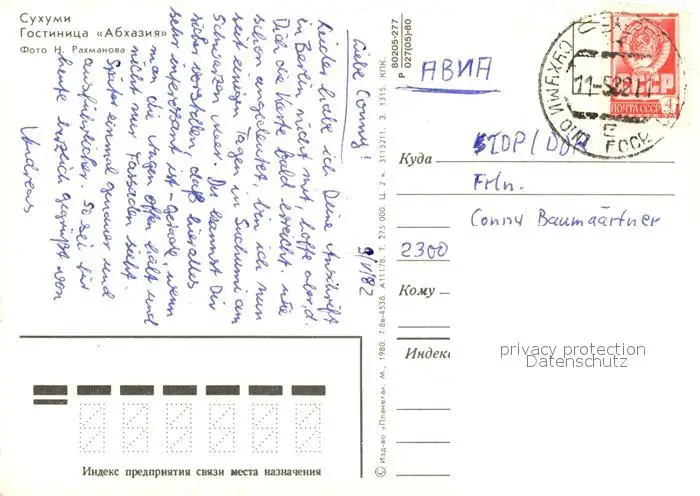 Сухуми
Гостиница «Абхазия»
Фото Н. Рахманова
9/V/82
Liebe Conny!
Leider habe ich Deine Anschrift
in Berlin nicht mit, hoffe aber, d.
Dich die Karte bald erreicht. Wie
schon angedeutet, bin ich nun
seit einigen Tagen in Suchumi am
Schwarzen Meer. Du kannst Dir
sicher vorstellen, daß hier alles
sehr interessant ist - gerade, wenn
man die Augen offen hält und
nicht nur Fassaden sieht.
Später einmal genauer und
ausführlicher. So sei für
heute herzlich gegrüßt von
Andreas
80205-277
Р 027(05)-80
© Изд-во «Планета». М., 1980. 7-8в-4538. А11178. Т. 275 000. Ц. 2 к. З. 1315. КПК.
АВИА
ПОЧТА СССР
СУХУМИ
Куда
DDR
Frln.
Conny Baumgärtner
2300
Кому
Индекс
privacy protection
Datenschutz
Индекс предприятия связи места назначения